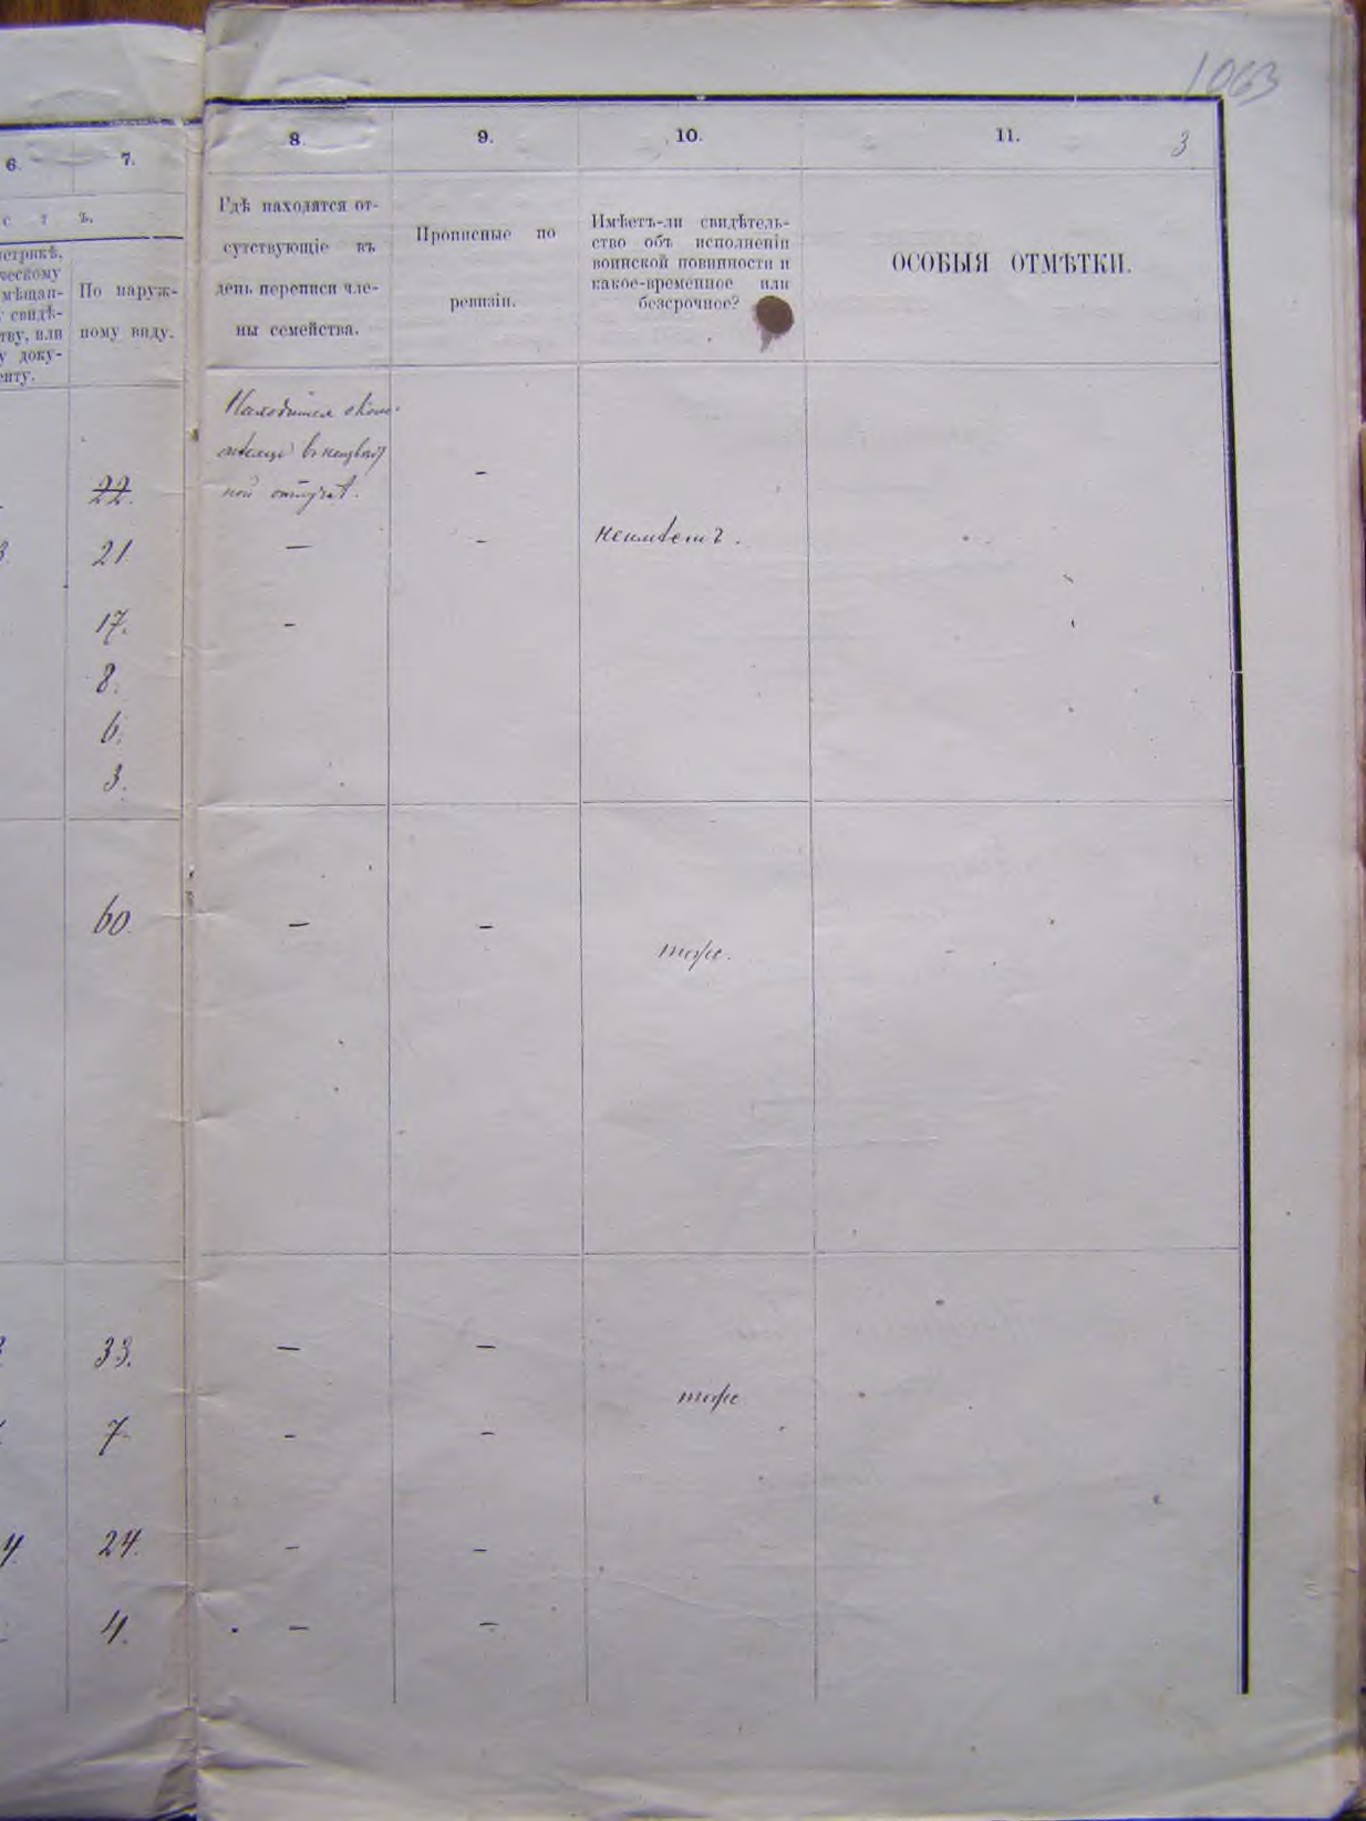 1063
6. 7. 8. 9. 10. 11. 3
с т ъ.
етрикѣ,
ческому
мѣщан-
свидѣ-
тву, или
у доку-
енту.
По наруж-
ному виду.
Гдѣ находятся от-
сутствующіе въ
день переписи чле-
ны семейства.
Прописные по
ревизіи.
Имѣетъ-ли свидѣтель-
ство объ исполненіи
воинской повинности и
какое-временное или
безсрочное?
ОСОБЫЯ ОТМѢТКИ.
Находится
ной отлучкѣ.
22. –
21 – – неимѣетъ.
17. –
8.
6.
3.
60. – – тоже.
33. – – тоже
7 – –
4. 24. – –
4. – –